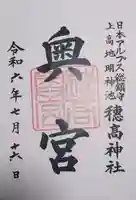 日本アルプス総鎮守
上高地明神池
穂髙神社
奥宮
令和六年七月十六日